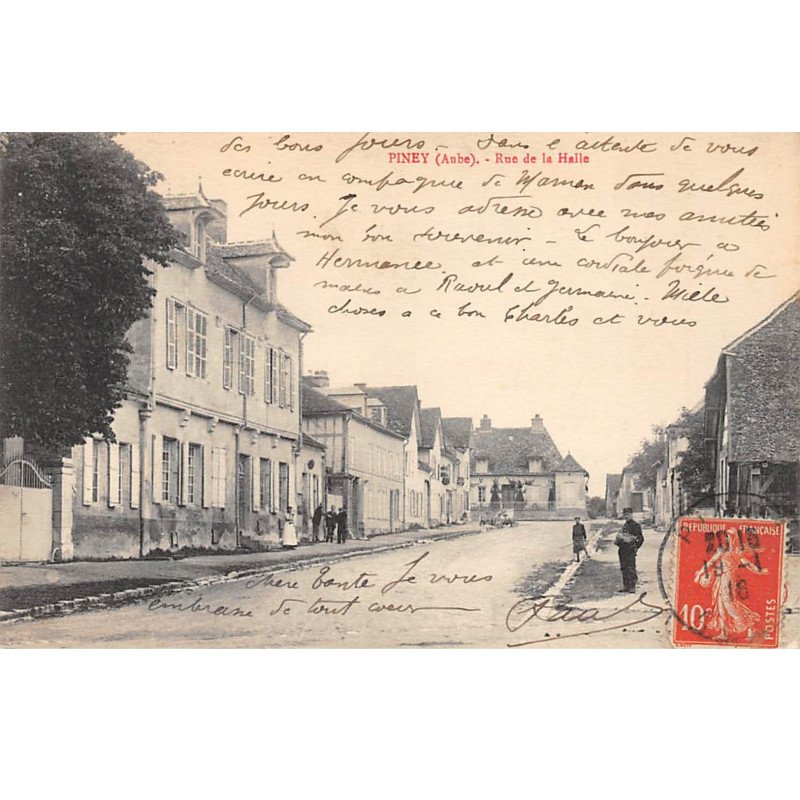 des bons jours - Dans l'attente de vous
PINEY (Aube). - Rue de la Halle
écrire en compagnie de Maman dans quelques
jours. Je vous adresse avec mes amitiés
mon bon souvenir - Le bonjour a
Hermance et une cordiale poignée de
mains a Raoul et Germaine. Mille
choses a ce bon Charles et vous
chère Tante Je vous
embrasse de tout coeur
REPUBLIQUE FRANÇAISE
10c
POSTES